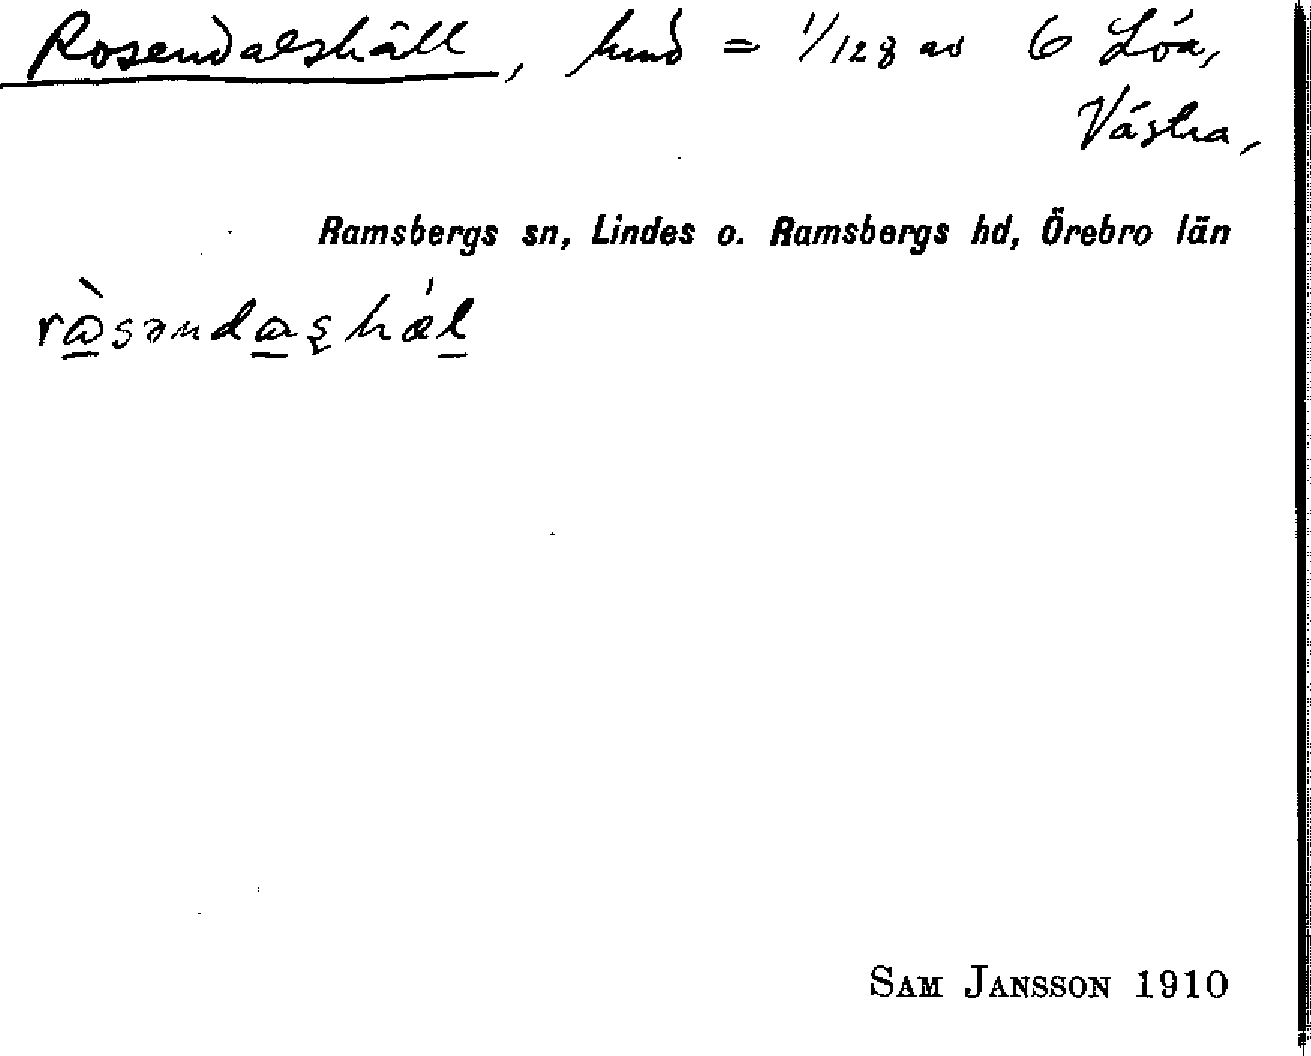 Rosendalshäll, hmd = 1/128 av 6 Lóa,
Västra,
Ramsbergs sn, Lindes o. Ramsbergs hd, Örebro län
SAM JANSSON 1910